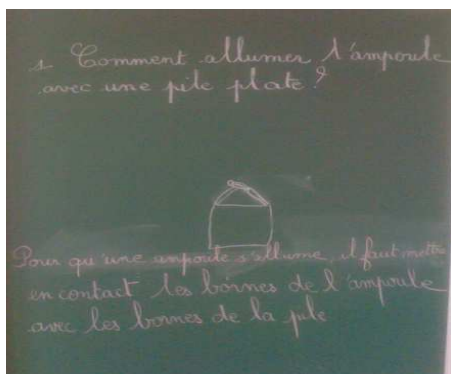 1 Comment allumer l'ampoule
avec une pile plate ?
Pour qu'une ampoule s'allume, il faut mettre
en contact les bornes de l'ampoule
avec les bornes de la pile